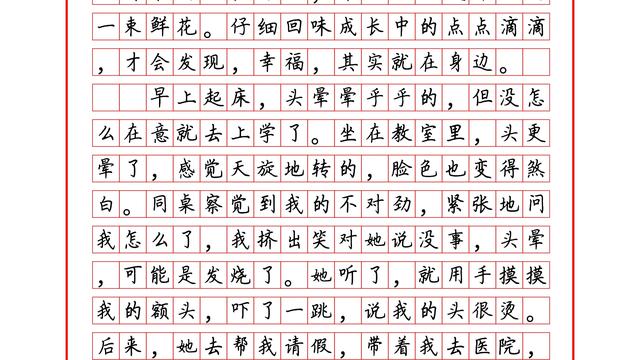 一束鲜花。仔细回味成长中的点点滴滴
，才会发现，幸福，其实就在身边。
早上起床，头晕晕乎乎的，但没怎
么在意就去上学了。坐在教室里，头更
晕了，感觉天旋地转的，脸色也变得煞
白。同桌察觉到我的不对劲，紧张地问
我怎么了，我挤出笑对她说没事，头晕
，可能是发烧了。她听了，就用手摸摸
我的额头，吓了一跳，说我的头很烫。
后来，她去帮我请假，带着我去医院，